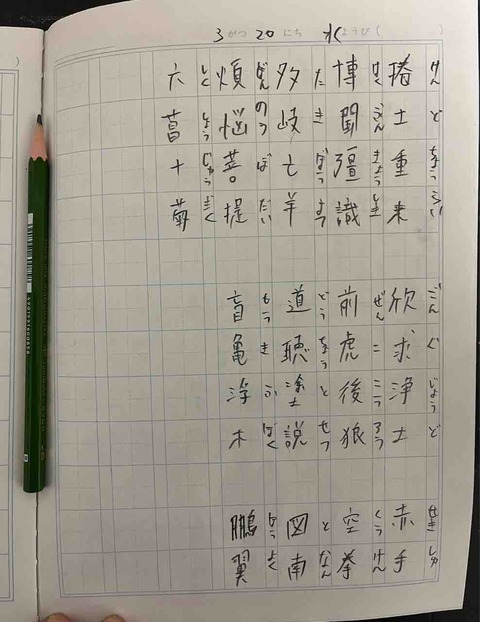 3がつ20にち 水ようび( )
けんどちょうらい ごんぐじょうど せきしゅ
捲土重来 欣求浄土 赤手
はくぶんきょうしき ぜんここうろう くうけん
博聞彊識 前虎後狼 空拳
たきぼうよう どうちょうとせつ となん
多岐亡羊 道聴塗説 図南
ぼんのうぼだい もうきふぼく ほうよく
煩悩菩提 盲亀浮木 鵬翼
りくしょうじゅうぎく
六菖十菊